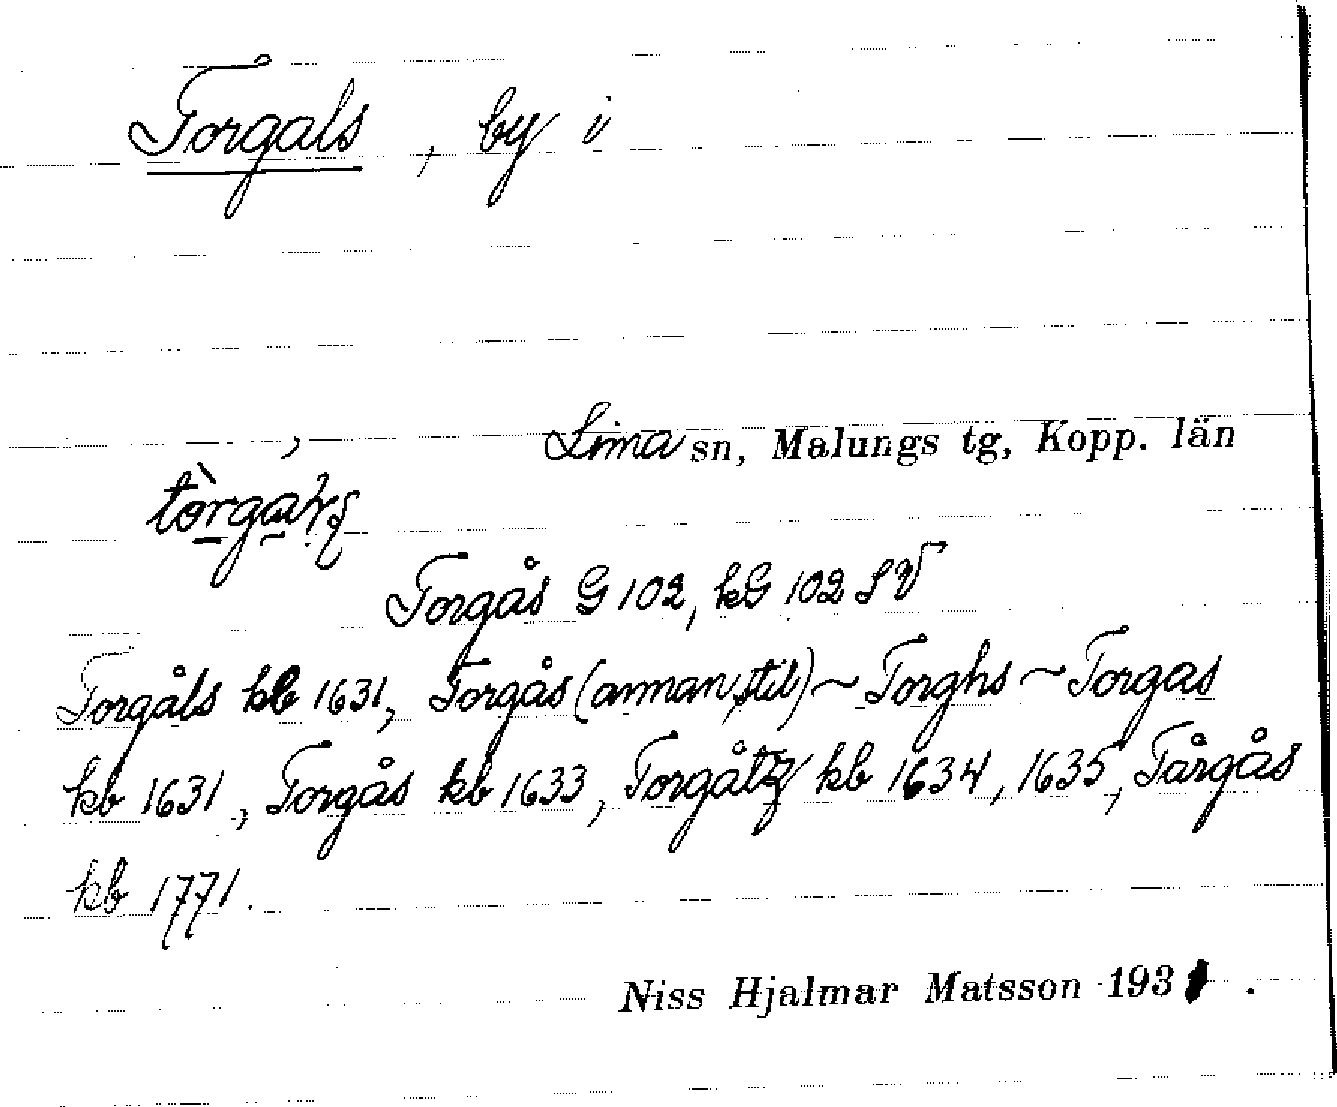 Torgals, by i
Lima sn, Malungs tg, Kopp. län
Torgås G 102, kG 102 SV
Torgåls kb 1631, Torgås (annan stil) ~ Torghs ~ Torgas
kb 1631, Torgås kb 1633, Torgåtz kb 1634, 1635, Tårgås
kb 1771.
Niss Hjalmar Matsson 193 .